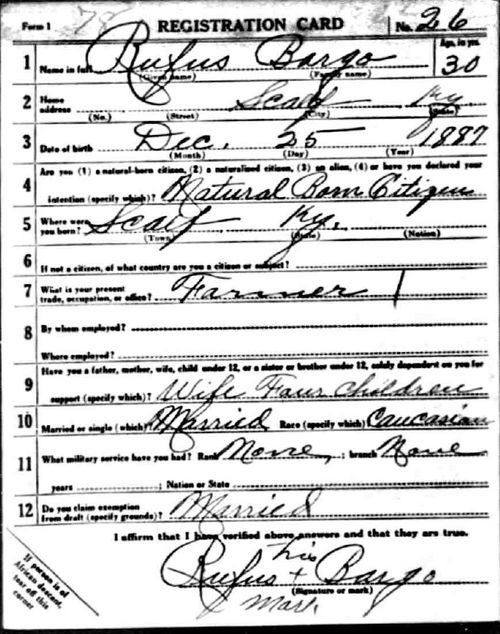 Form 1 REGISTRATION CARD No. 26
1 Name in full Rufus Bargo Age, in yrs. 30
(Given name) (Family name)
2 Home address Scalf Ky.
(No.) (Street) (City) (State)
3 Date of birth Dec. 25 1887
(Month) (Day) (Year)
Are you (1) a natural-born citizen, (2) a naturalized citizen, (3) an alien, (4) or have you declared your
4 intention (specify which)? Natural Born Citizen
5 Where were you born? Scalf Ky.
(Town) (State) (Nation)
6 If not a citizen, of what country are you a citizen or subject?
7 What is your present trade, occupation, or office? Farmer
8 By whom employed?
Where employed?
Have you a father, mother, wife, child under 12, or a sister or brother under 12, solely dependent on you for
9 support (specify which)? Wife Four Children
10 Married or single (which)? Married Race (specify which)? Caucasian
11 What military service have you had? Rank None ; branch None
years ; Nation or State
12 Do you claim exemption from draft (specify grounds)? Married
I affirm that I have verified above answers and that they are true.
his
Rufus + Bargo
(Signature or mark)
Mark
If person is of
African descent,
tear off this
corner